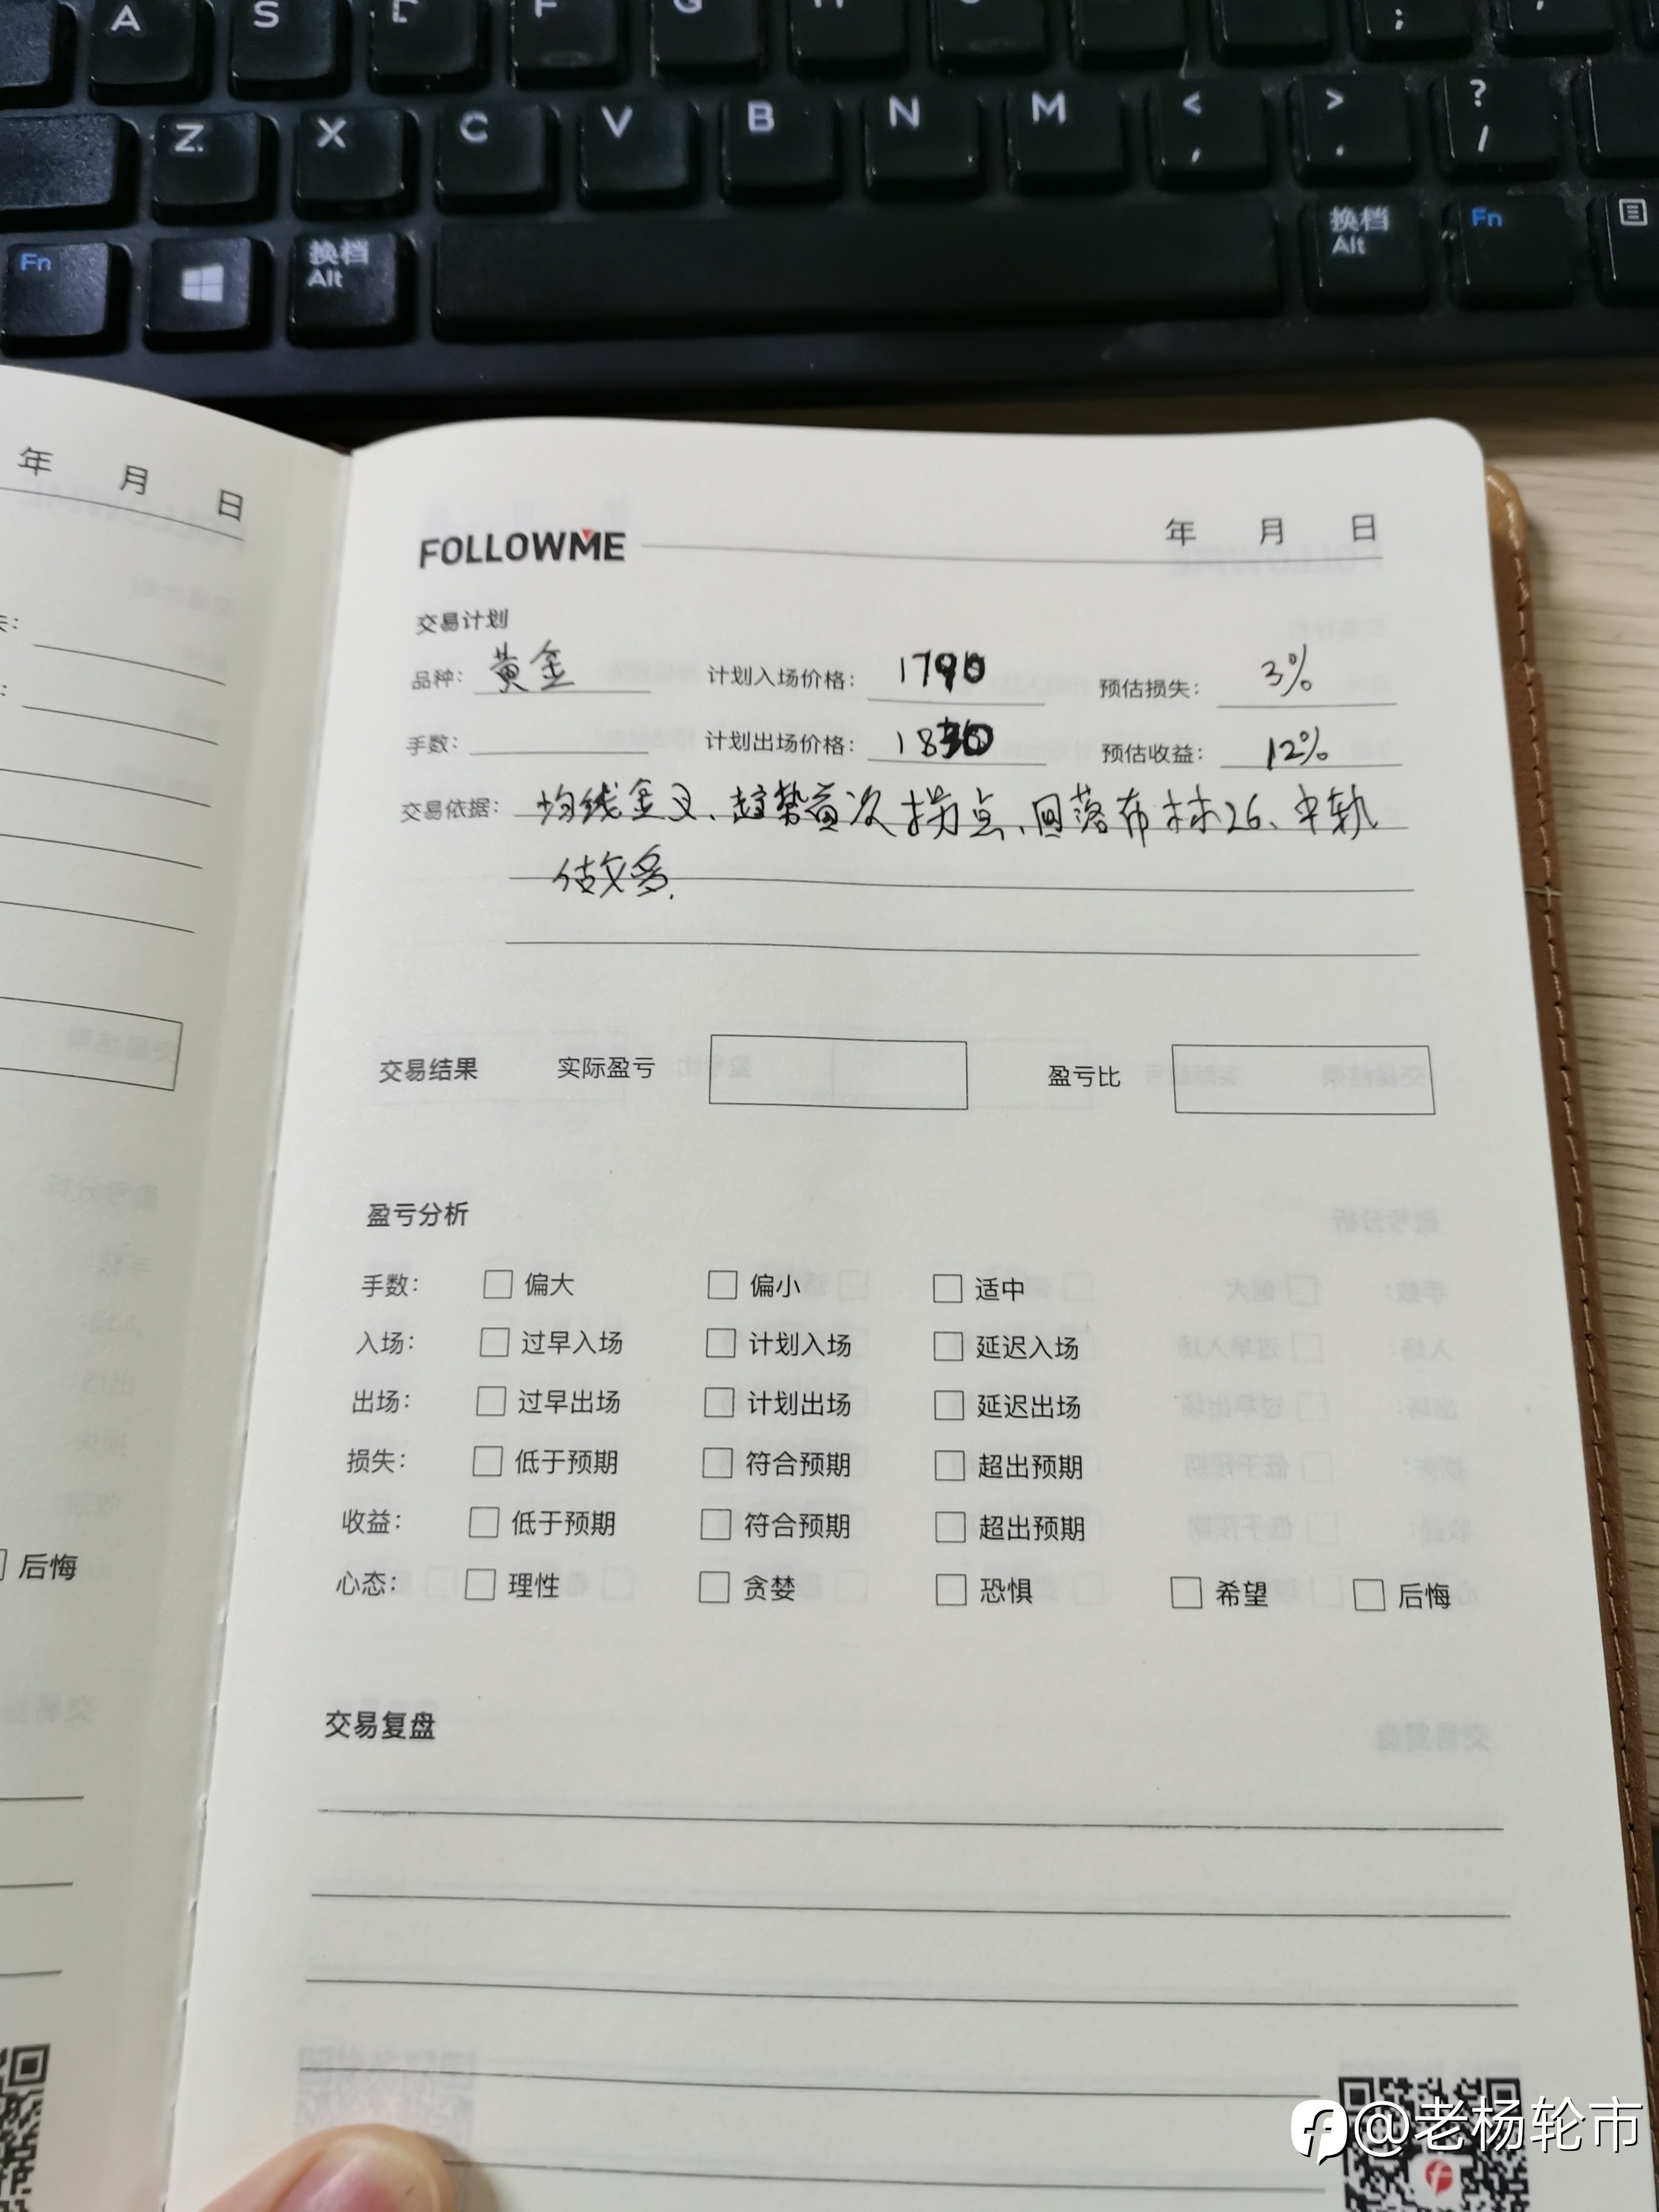 A S F G
Z X C V B N M < , > . ? /
Fn 换档 Alt 换档 Alt Fn
年 月 日
后悔
FOLLOWME 年 月 日
交易计划
品种: 黄金 计划入场价格: 1790 预估损失: 3%
手数: 计划出场价格: 1830 预估收益: 12%
交易依据: 均线金叉、趋势首次拐点、回落布林26、中轨
做多.
交易结果 实际盈亏 盈亏比
盈亏分析
手数: 偏大 偏小 适中
入场: 过早入场 计划入场 延迟入场
出场: 过早出场 计划出场 延迟出场
损失: 低于预期 符合预期 超出预期
收益: 低于预期 符合预期 超出预期
心态: 理性 贪婪 恐惧 希望 后悔
交易复盘
@老杨轮市